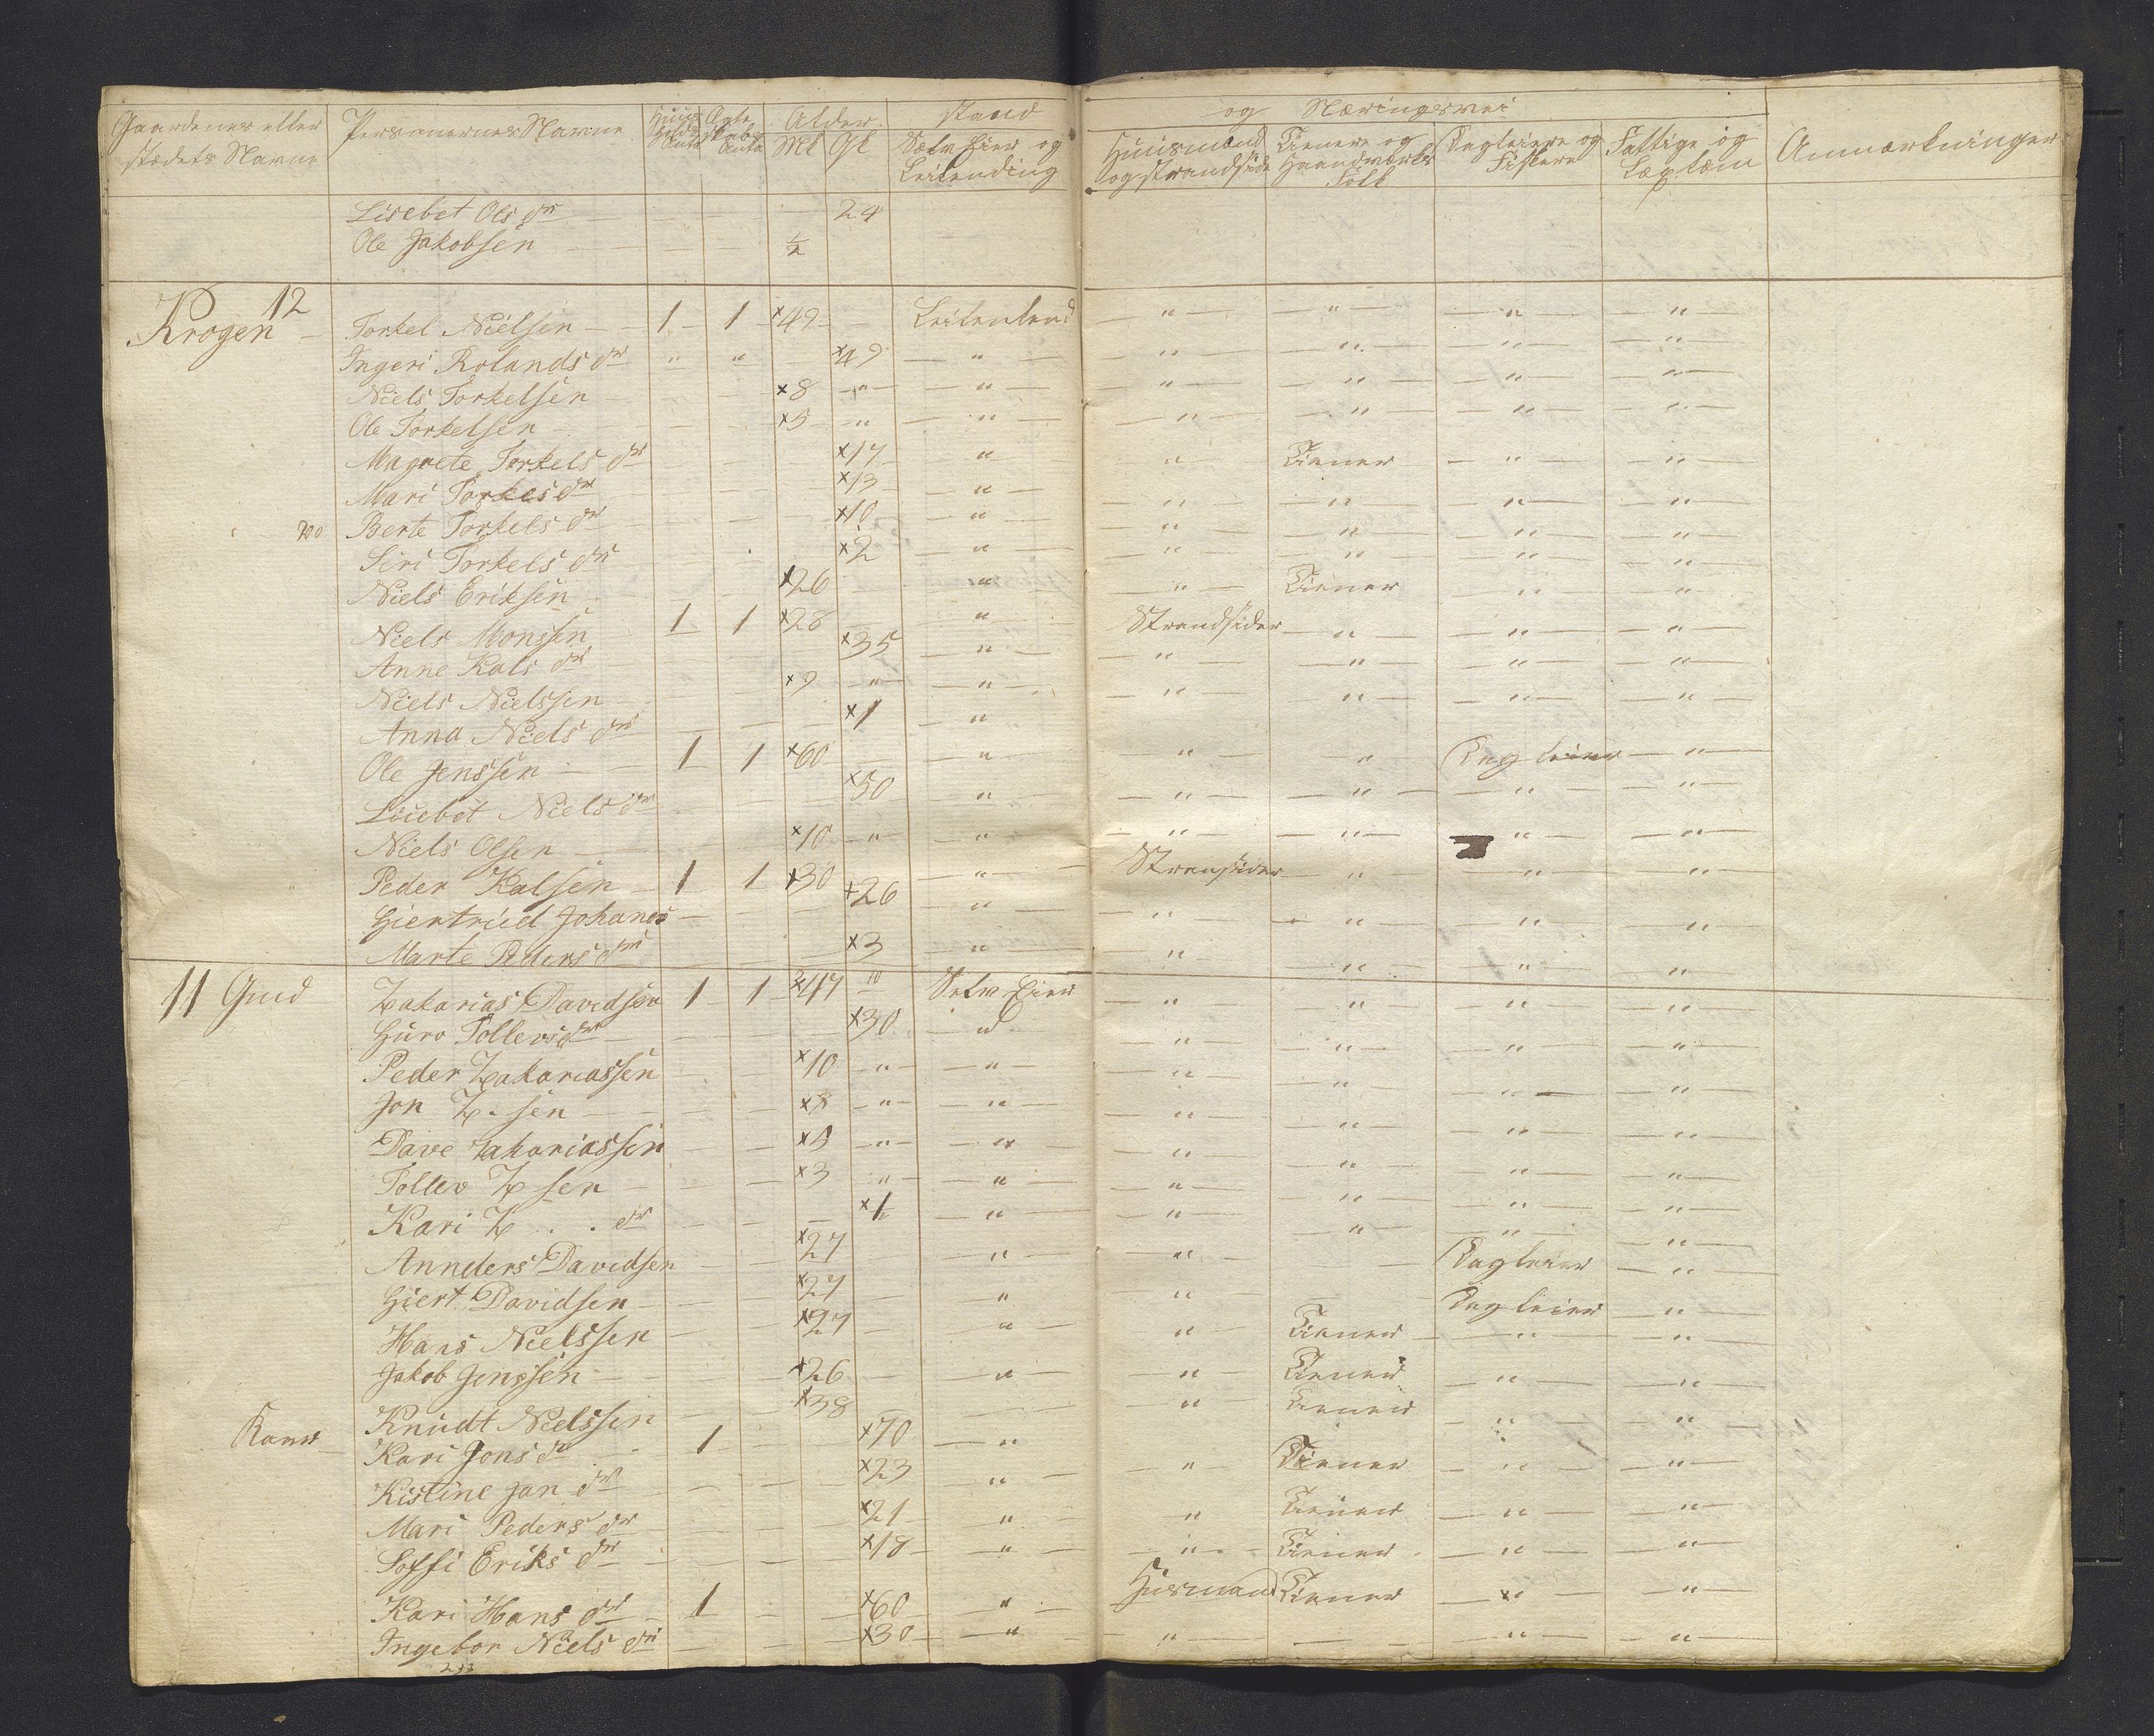 Gaardenes eller stædets Navne | Personernes Navne | Huus holds Antal | Ægte skabs Antal | Alder Ml Ql | stand Selv Eier og Leilending | og Næringsvei Huusmænd og strandsider | Tienere og Haandværks Folk | Dagleiere og Fiskere | Fattige og Læglæm | Anmærkninger
Lisebet Ols dr — 24
Ole Jakobsen — ½
Krogen 12 Torkel Nielsen — 1 — 1 ×49 Leilending " " " "
Ingeri Rolands dr " " ×49 " " " " "
Niels Torkelsen ×8 " " " " " "
Ole Torkelsen ×5 " " " " " "
Magrete Torkels dr ×17 " " Tiener " "
Mari Torkels dr ×13 " " " " "
700 Berte Torkels dr ×10 " " " " "
Siri Torkels dr ×2 " " " " "
Niels Eriksen ×26 " " Tiener " "
Niels Monssen 1 1 ×28 " Strandsider " " "
Anne Kals dr ×35 " " " " "
Niels Nielssen ×9 " " " " " "
Anna Niels dr ×1 "
Ole Jenssen 1 1 ×60 " " " Dagleier "
Lisebet Niels dr ×50 " " " " "
Niels Olsen ×10 " " " " " "
Peder Kalsen 1 1 ×30 " Strandsider " " "
Giertrud Johanes ×26 " " " " "
Marte Peders dr ×3 " " " " "
11 Gud Zakarias Davidsen 1 1 Selv Eier " " " "
Guro Tollevs dr ×30 " " " " "
Peder Zakariassen ×10 " " " " " "
Jon Z. sen " " " " " "
Dave Zakariassen ×5 " " " " " "
Tollev Z sen ×3 " " " " " "
Kari Z . . dr ×½ " " " " "
Annders Davidsen ×27 " " Dagleier "
Giert Davidsen ×27 " " Dagleier "
Hans Nielssen ×27 " " Tiener " "
Jakob Jenssen ×26 " " Tiener " "
Knudt Nielssen ×38 " Tiener " "
Kari Jons dr 1 ×70 " " Tiener " "
Kistine Jon dr ×23 "
Mari Peders dr ×21 " " Tiener " "
Soffi Eriks dr ×18 " " Tiener " "
Kari Hans dr 1 ×60 " Husmand Tiener " "
Ingebor Niels dr ×30 " " " "